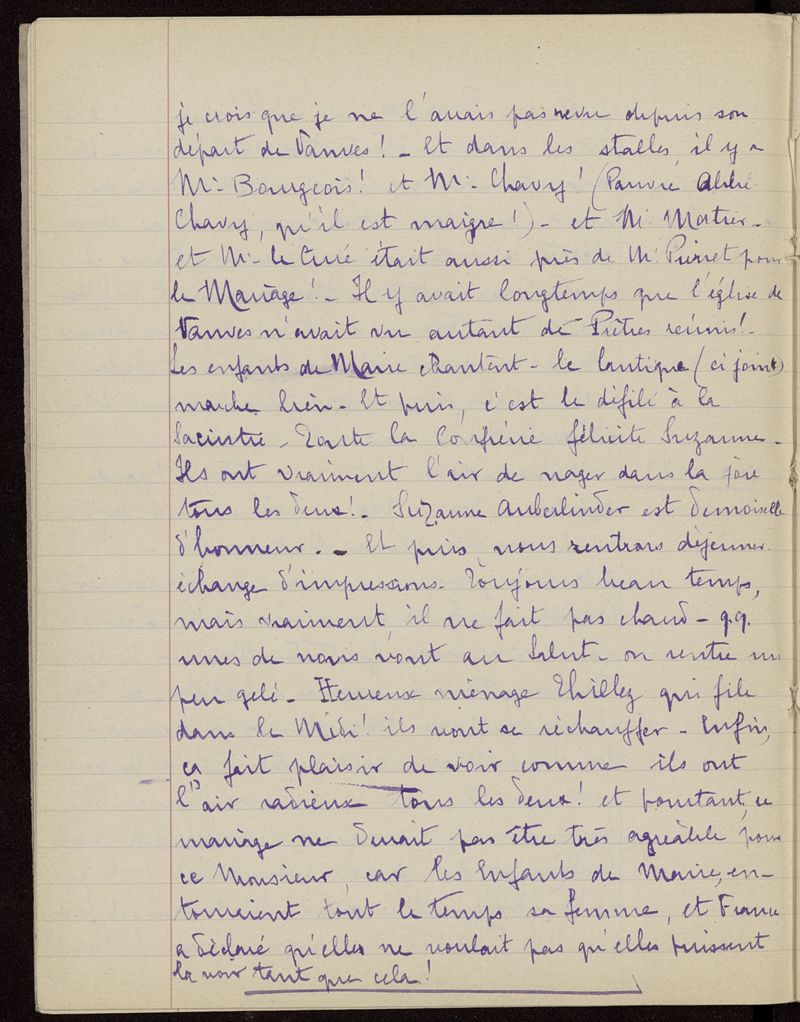 je crois que je ne l'avais pas revu depuis son
départ de Vanves! - Et dans les stalles, il y a
Mr Bourgeois! et Mr Chavy! (Pauvre Abbé
Chavy, qu'il est maigre!) - et Mr Mortier -
et Mr le Curé était aussi près de Mr Pierret pour
le Mariage! - Il y avait longtemps que l'église de
Vanves n'avait vu autant de Prêtres réunis! -
Les enfants de Marie chantent - le Cantique (ci joint)
marche bien - Et puis, c'est le défilé à la
Sacristie - Toute la Confrérie félicite Suzanne -
Ils ont vraiment l'air de nager dans la joie
tous les deux! - Suzanne Auberlinder est demoiselle
d'honneur. - Et puis, nous rentrons déjeuner
échange d'impressions - Toujours beau temps,
mais vraiment, il ne fait pas chaud - q.q.
unes de nous vont au Salut - on rentre un
peu gelé - Heureux ménage Thillez qui file
dans le Midi! ils vont se réchauffer - Enfin,
ça fait plaisir de voir comme ils ont
l'air radieux tous les deux! et pourtant, ce
mariage ne devait pas être très agréable pour
ce Monsieur, car les Enfants de Marie, en-
touraient tout le temps sa femme, et
a déclaré qu'elles ne voulait pas qu'elles puissent
la voir tant que cela!